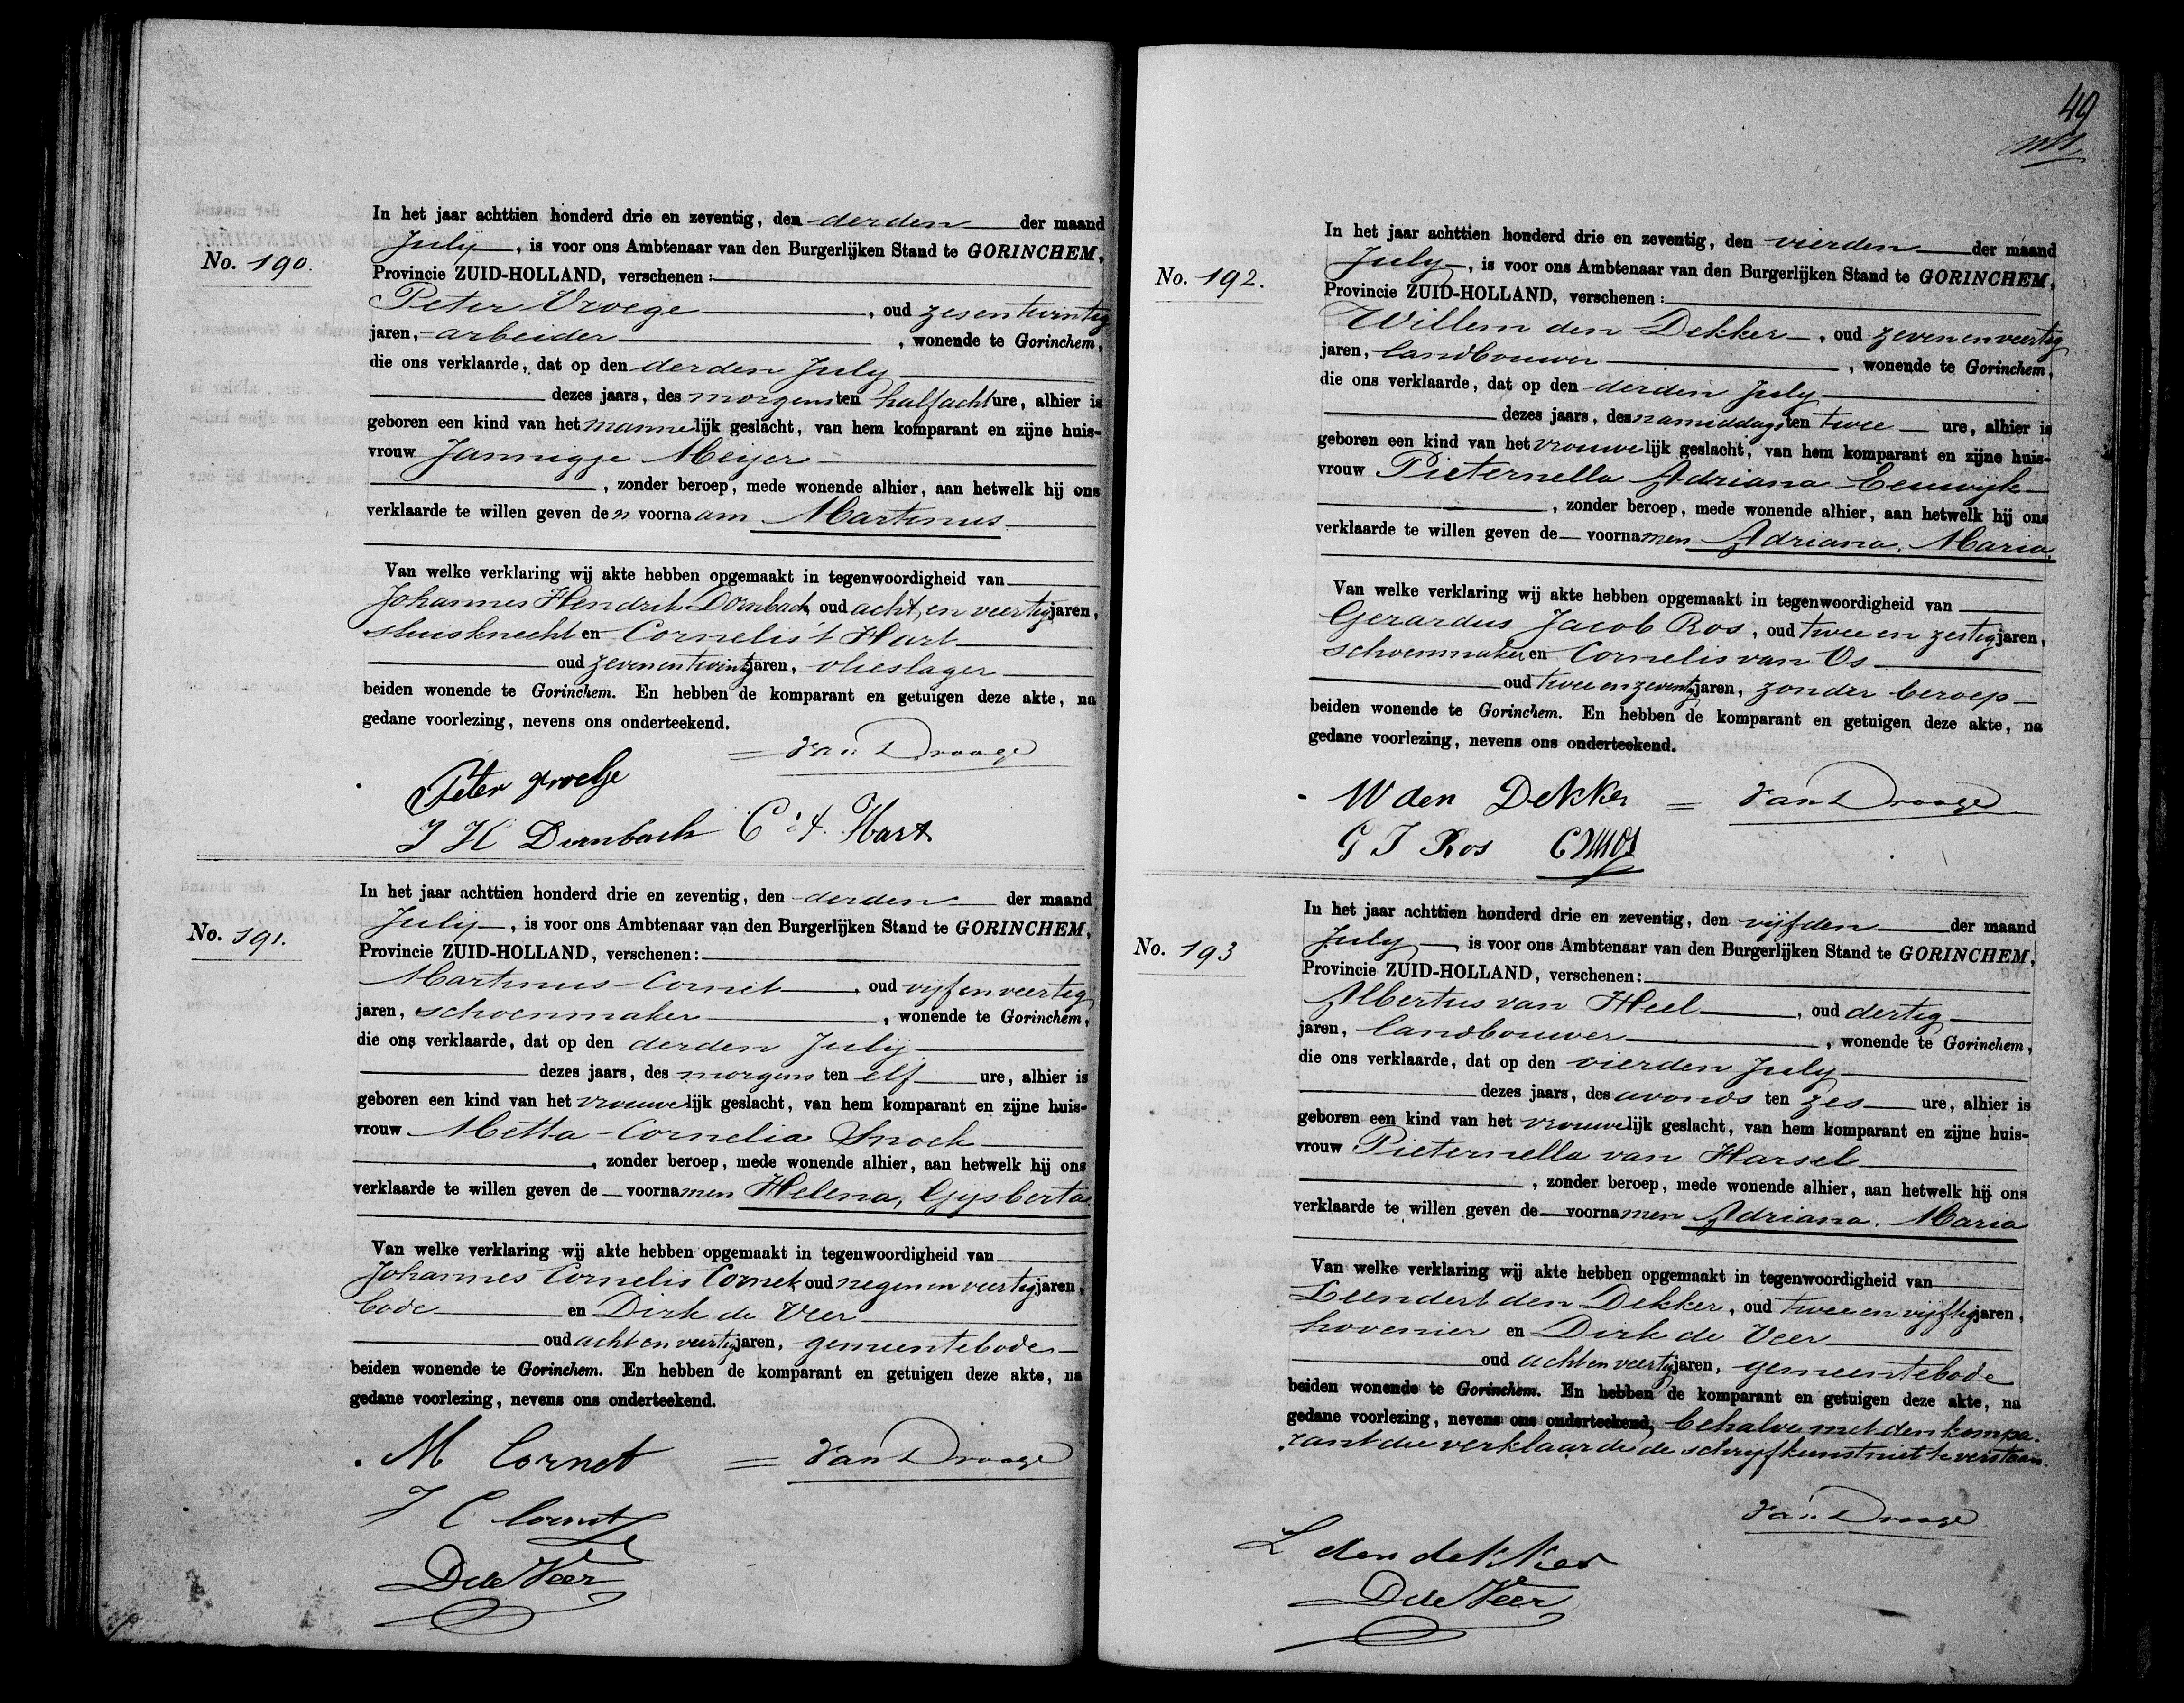 No. 190.
In het jaar achttien honderd drie en zeventig, den derden der maand
July, is voor ons Ambtenaar van den Burgerlijken Stand te GORINCHEM,
Provincie ZUID-HOLLAND, verschenen:
Peter Vroege, oud zesentwintig
jaren, arbeider, wonende te Gorinchem,
die ons verklaarde, dat op den derden July
dezes jaars, des morgens ten half acht ure, alhier is
geboren een kind van het mannelijk geslacht, van hem komparant en zijne huis-
vrouw Jannigje Meijer
, zonder beroep, mede wonende alhier, aan hetwelk hij ons
verklaarde te willen geven den voornaam Martinus
Van welke verklaring wij akte hebben opgemaakt in tegenwoordigheid van
Johannes Hendrik Dornbach, oud acht en veertig jaren,
sluisknecht en Cornelis 't Hart
oud zevenentwintig jaren, olieslager
beiden wonende te Gorinchem. En hebben de komparant en getuigen deze akte, na
gedane voorlezing, nevens ons onderteekend.
= Van Drooge
Peter
J H Dornbach C: 't Hart
No. 191.
In het jaar achttien honderd drie en zeventig, den derden der maand
July, is voor ons Ambtenaar van den Burgerlijken Stand te GORINCHEM,
Provincie ZUID-HOLLAND, verschenen:
Martinus Cornet, oud vijfenveertig
jaren, schoenmaker, wonende te Gorinchem,
die ons verklaarde, dat op den derden July
dezes jaars, des morgens ten elf ure, alhier is
geboren een kind van het vrouwelijk geslacht, van hem komparant en zijne huis-
vrouw Metta Cornelia Snoek
, zonder beroep, mede wonende alhier, aan hetwelk hij ons
verklaarde te willen geven de voornamen Helena, Gijsberta
Van welke verklaring wij akte hebben opgemaakt in tegenwoordigheid van
Johannes Cornelis Cornet, oud negen en veertig jaren,
bode en Dirk de Veer
oud acht en veertig jaren, gemeentebode
beiden wonende te Gorinchem. En hebben de komparant en getuigen deze akte, na
gedane voorlezing, nevens ons onderteekend.
M Cornet = Van Drooge
J C Cornet
D de Veer
49
No. 192.
In het jaar achttien honderd drie en zeventig, den vierden der maand
July, is voor ons Ambtenaar van den Burgerlijken Stand te GORINCHEM,
Provincie ZUID-HOLLAND, verschenen:
Willem den Dekker, oud zevenenveertig
jaren, landbouwer, wonende te Gorinchem,
die ons verklaarde, dat op den derden July
dezes jaars, des namiddags ten twee ure, alhier is
geboren een kind van het vrouwelijk geslacht, van hem komparant en zijne huis-
vrouw Pieternella Adriana Eeuwijk
, zonder beroep, mede wonende alhier, aan hetwelk hij ons
verklaarde te willen geven de voornamen Adriana, Maria,
Van welke verklaring wij akte hebben opgemaakt in tegenwoordigheid van
Gerardus Jacob Ros, oud twee en zestig jaren,
schoenmaker en Cornelis van Os
oud twee en zeventig jaren, zonder beroep
beiden wonende te Gorinchem. En hebben de komparant en getuigen deze akte, na
gedane voorlezing, nevens ons onderteekend.
W den Dekker = Van Drooge
G J Ros C v Os
No. 193
In het jaar achttien honderd drie en zeventig, den vijfden der maand
July, is voor ons Ambtenaar van den Burgerlijken Stand te GORINCHEM,
Provincie ZUID-HOLLAND, verschenen:
Albertus van Heel, oud dertig
jaren, landbouwer, wonende te Gorinchem,
die ons verklaarde, dat op den vierden July
dezes jaars, des avonds ten zes ure, alhier is
geboren een kind van het vrouwelijk geslacht, van hem komparant en zijne huis-
vrouw Pieternella van Harsel
, zonder beroep, mede wonende alhier, aan hetwelk hij ons
verklaarde te willen geven de voornamen Adriana. Maria
Van welke verklaring wij akte hebben opgemaakt in tegenwoordigheid van
Leendert den Dekker, oud twee en vijftig jaren,
hovenier en Dirk de Veer
oud acht en veertig jaren, gemeentebode
beiden wonende te Gorinchem. En hebben de komparant en getuigen deze akte, na
gedane voorlezing, nevens ons onderteekend, behalve met den kompa-
rant die verklaarde de schryfkunst niet te verstaan.
Van Drooge
L den dekker
D de Veer